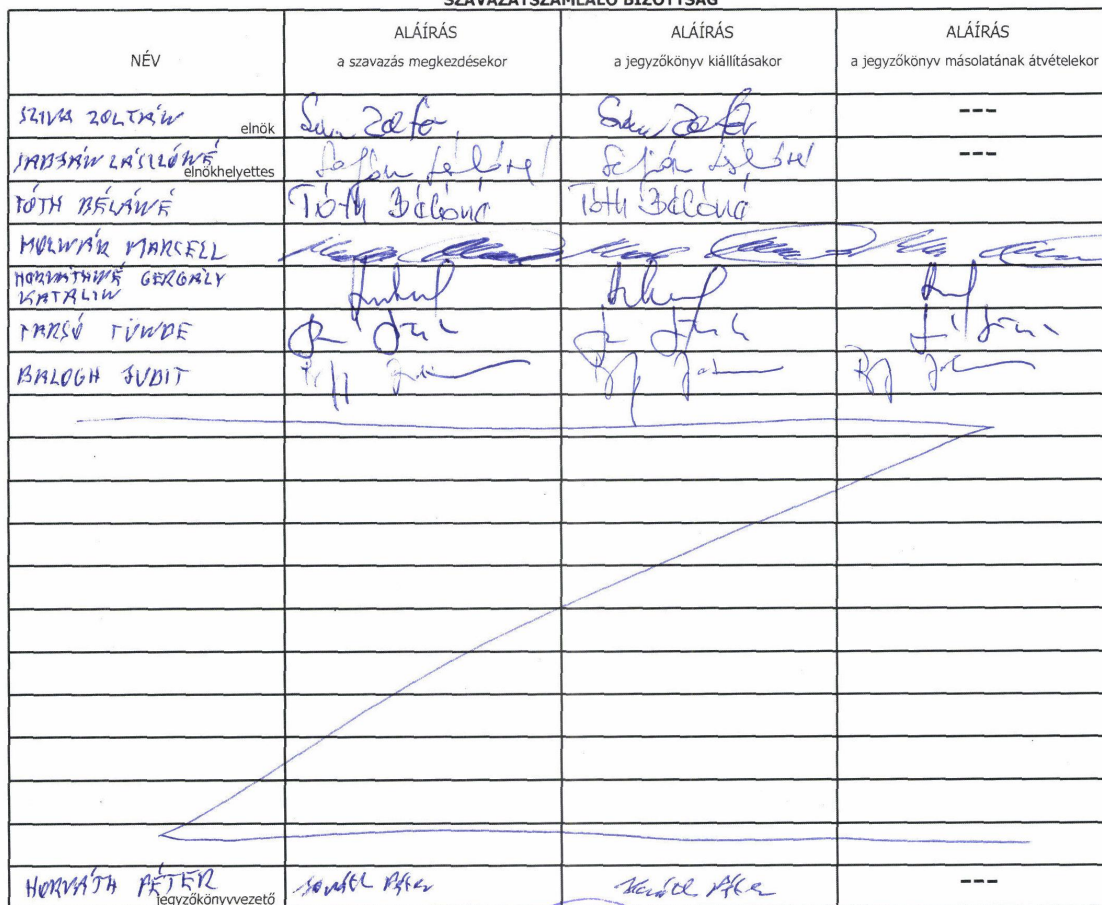 SZAVAZATSZÁMLÁLÓ BIZOTTSÁG
NÉV
ALÁÍRÁS
a szavazás megkezdésekor
ALÁÍRÁS
a jegyzőkönyv kiállításakor
ALÁÍRÁS
a jegyzőkönyv másolatának átvételekor
SZIVA ZOLTÁN
elnök
---
LÁSZLÓNÉ
elnökhelyettes
---
TÓTH BÉLÁNÉ
Tóth Béláné
Tóth Béláné
MOLNÁR MARCELL
HORVÁTHNÉ GERGALY
KATALIN
TARSÓ TÜNDE
BALOGH JUDIT
HORVÁTH PÉTER
jegyzőkönyvvezető
Horváth Péter
Horváth Péter
---